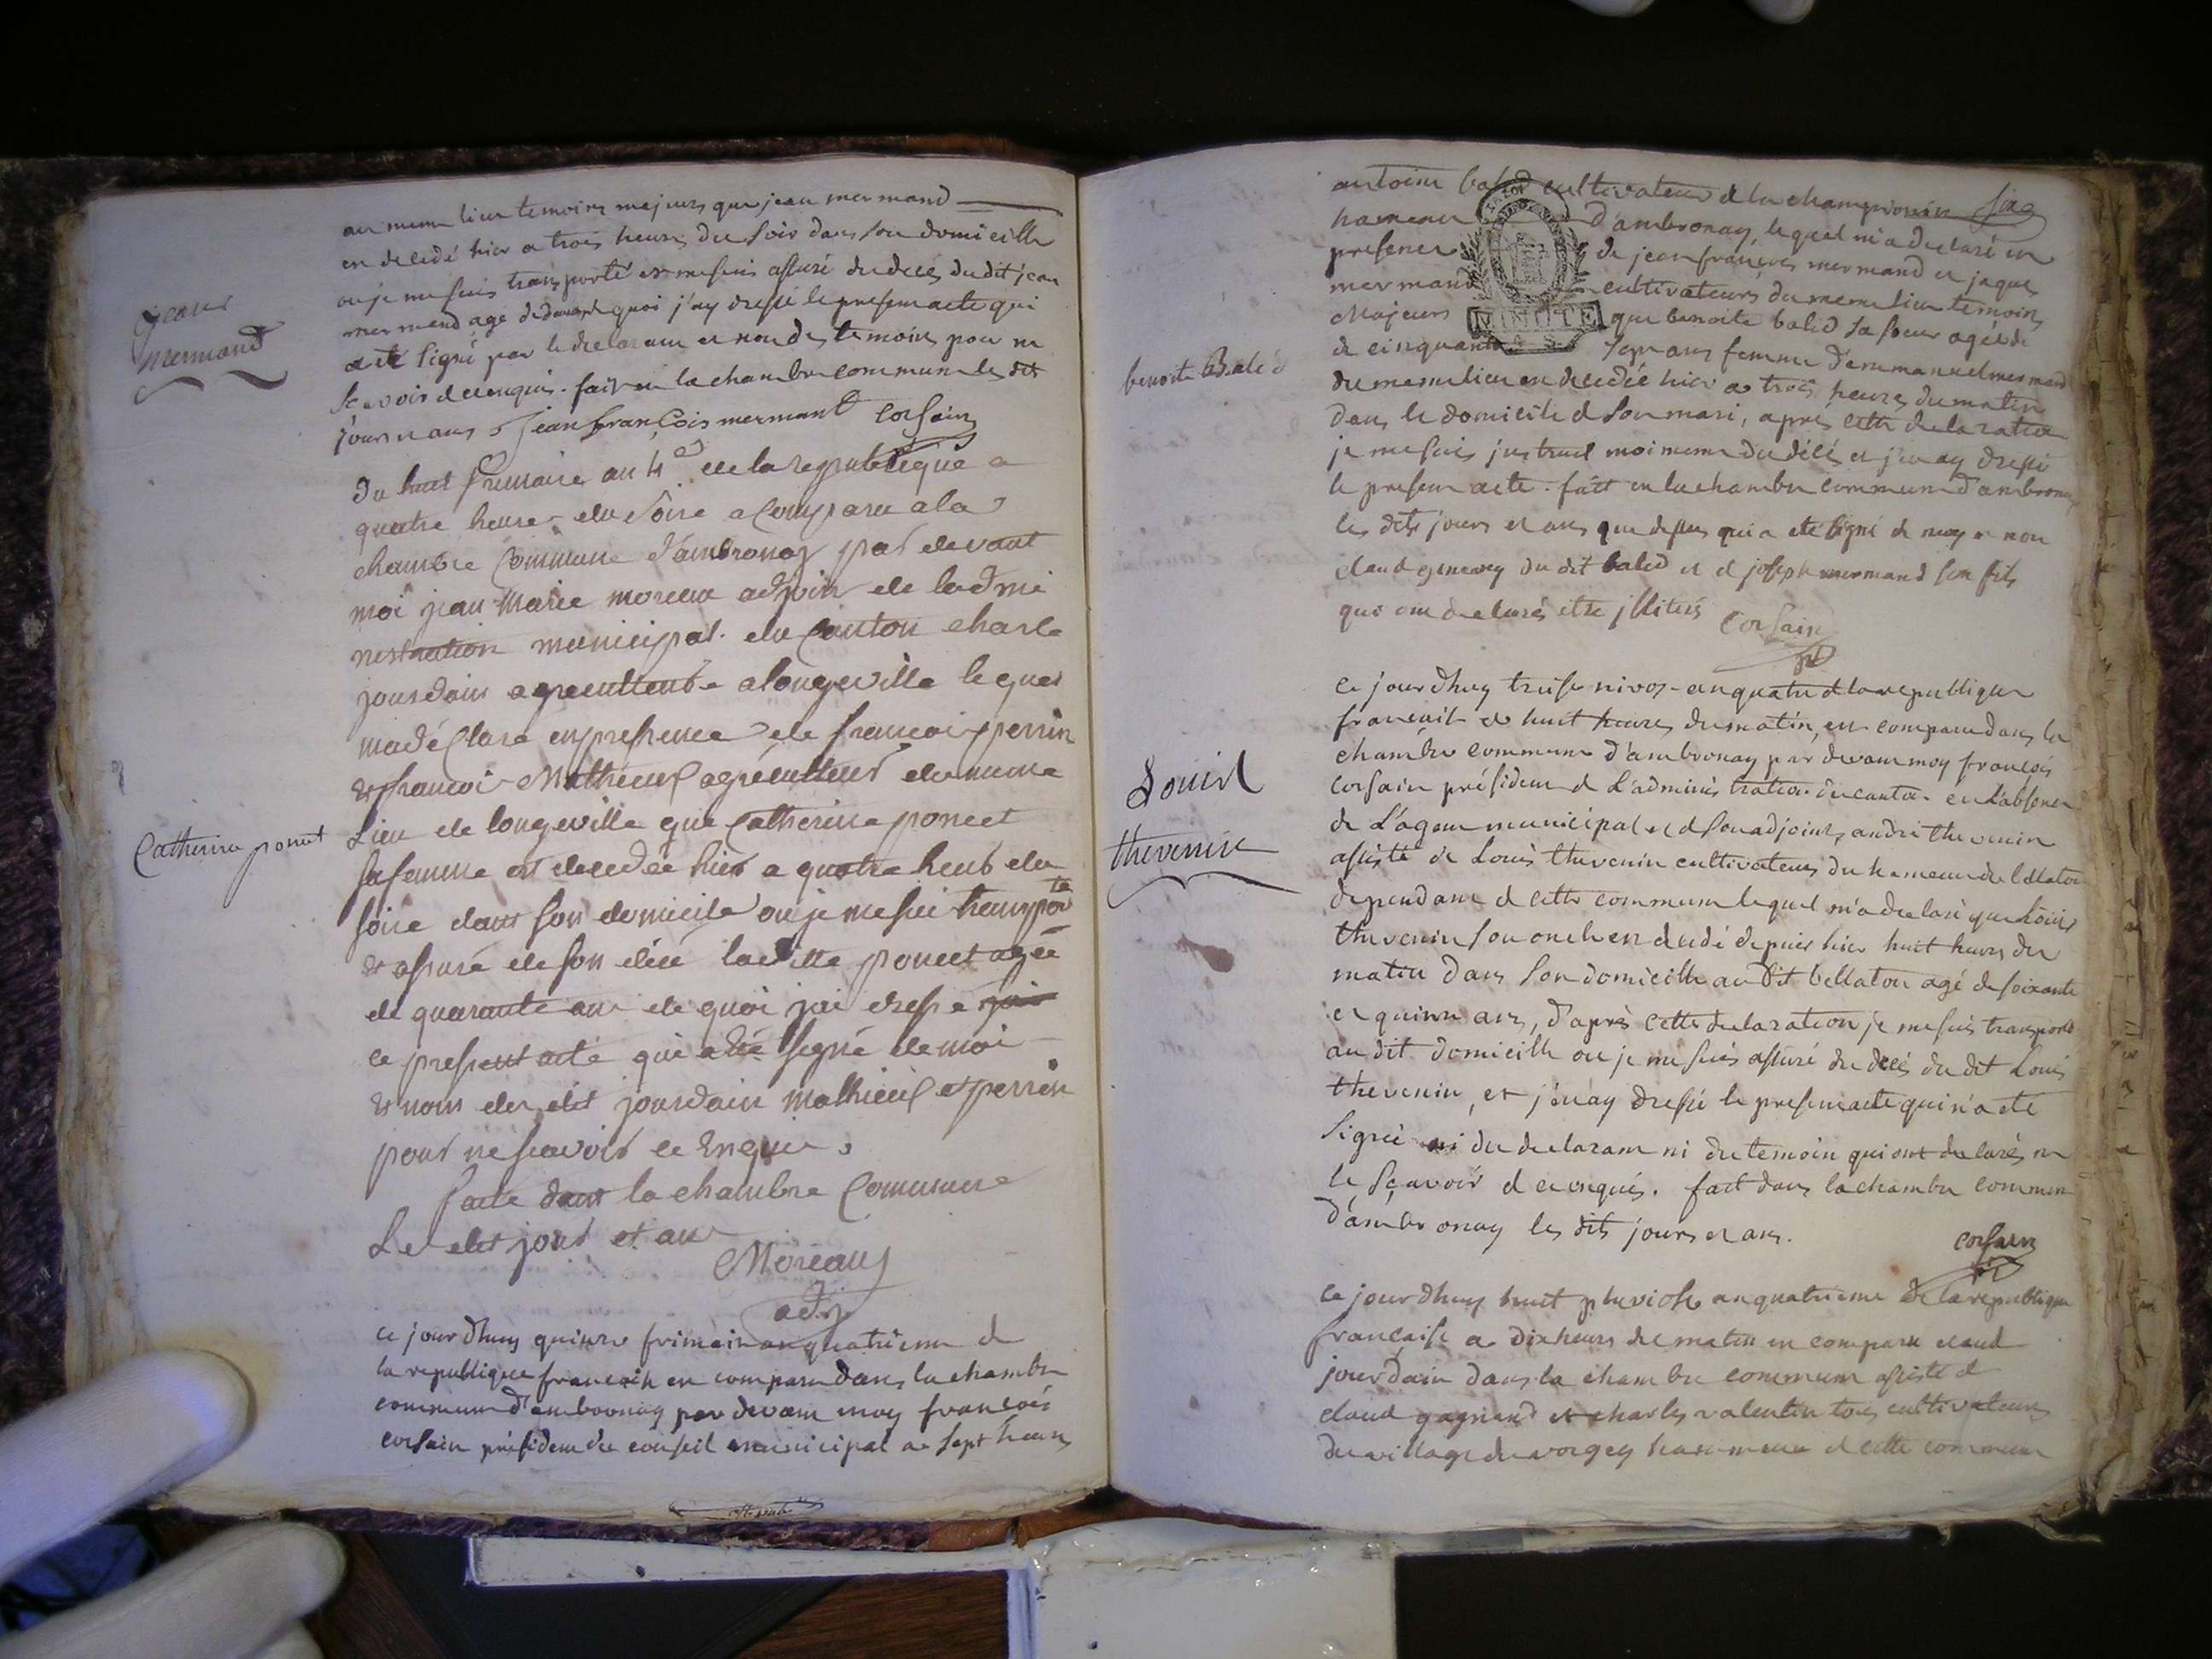 au meme lieu temoins majeurs que jean mermand
en decedé hier a trois heures du soir dans son domicille
ou je me suis transporté et me suis assuré du deces du dit jean
mermend age de quoi j'ay dressé le presen acte qui
a eté signé par le declaran et non des temoins pour ne
scavoir de ce enquis. fait en la chambre commune les dit
jours et ans Jean francois mermant Corsain
jean
mermand
Du huit frimaire an 4 de la republique a
quatre heure du soire a comparu a la
chambre Commune d'ambronay par devant
moi jean Marie moreau adjoin de ladmi
nestration municipal du canton charle
jourdain agreculteur a longeville lequel
madéclaré en presence de francoi perrin
et francoi Mathieux agréculteur du meme
Catherine poncet
Lieu de longeville que Catherine poncet
sa femme est decedée hier a quatre heur du
soire dans son domicile ou je me sui transporté
et assuré de son décé laditte poncet agée
de quarante an de quoi jai dressé
ce present acte qui a été segné de moi
et nom des dit jourdain mathieux et perrin
pour ne scavoir ce enquie
faite dans la chambre Commune
Le dit jour et an
Moreau
adj
ce jourdhuy quinze frimair an quatrieme de
la republique francoise en comparu dans la chambre
commune d'ambronay par devam moy francois
corsain présiden du conseil municipal a sept heures
antoine baled cultivateur de la championiere
hameau d'ambronay, lequel m'a declaré en
presence de jean francois mermand et jaque
mermand cultivateurs du meme lieu temoins
Majeurs que benoite baled sa soeur agée de
MINUTE
benoite Baled
de cinquante sept ans femme d'emmanuel mermand
du meme lieu en decedée hier a trois heures du matin
dans le domicile de son mari, après cette declaration
je me suis justruit moi meme du décés et j'en ay dressé
le presen acte. fait en la chambre commune d'ambronay
les dits jours et ans que dessus qui a eté signé de moy et non
claud du dit baled et de joseph mermand son fils
qui ont declarés etre jlliterés Corsain
ce jourdhuy treise nivos an quatre de la republique
francaise a huit heures du matin, en comparu dans la
chambre commune d'ambronay par devam moy francois
corsain présiden de L'administration du canton en L'absence
Louis
thevenin
de L'agen municipal et de son adjoint, andré thevenin
assisté de Louis thevenin cultivateurs du hameau de bellaton
dependam de cette commune lequel m'a declaré que Louis
thevenin son oncle en decedé depuis hier huit heures du
matin dans son domicille au dit bellaton agé de soixante
et quinze ans, d'après cette declaration je me suis transporté
au dit domicille ou je me suis assuré du décés du dit Louis
thevenin, et j'en ay dressé le presen acte qui n'a eté
signé ni du declaram ni du temoin qui ont declarés ne
le scavoir de ce enquis. fait dans la chambre commune
d'ambronay les dits jours et ans.
corsain
ce jourdhuy huit pluviose an quatrieme de la republique
francaise a dix heures du matin en comparu claud
jourdain dans la chambre commune assisté de
claud gagneux et charles valentin tous cultivateurs
du village du vorgey hameau de cette commune